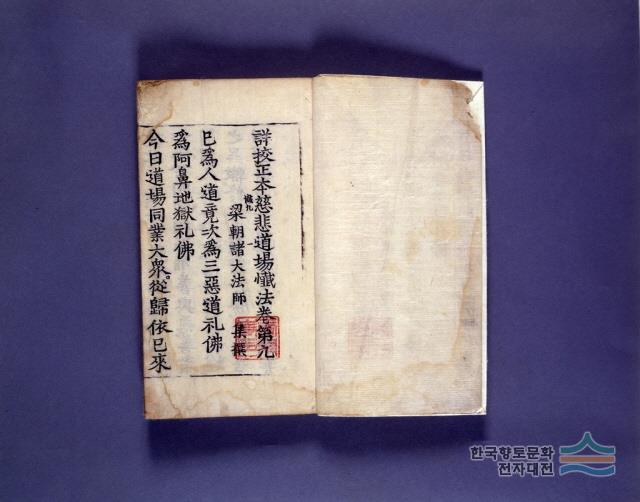 詳挍正本慈悲道場懺法卷第九
梁朝諸大法師 集撰
已爲人道竟次爲三惡道礼佛
爲阿鼻地獄礼佛
今日道場同業大衆從歸依已來
한국향토문화
전자대전